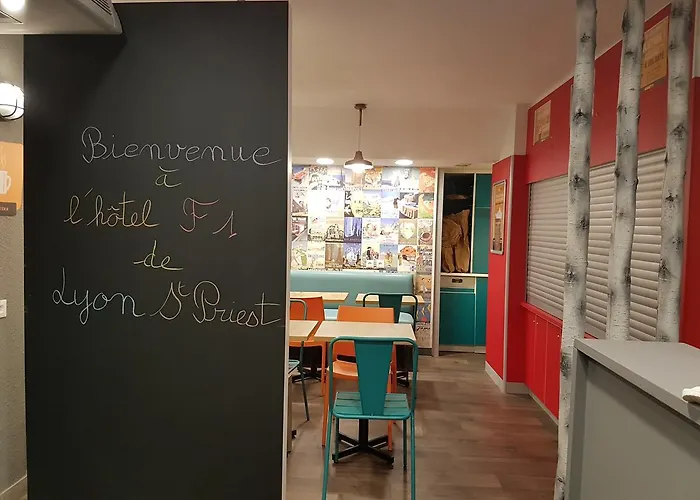 Bienvenue
à
l'hôtel F1
de
Lyon St Priest